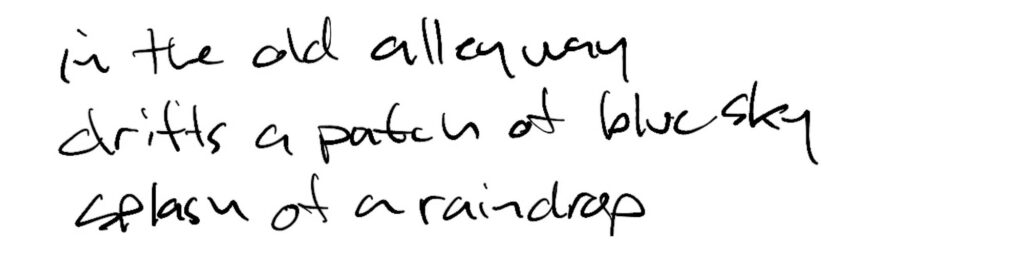 in the old alleyway
drifts a patch of blue sky
splash of a raindrop